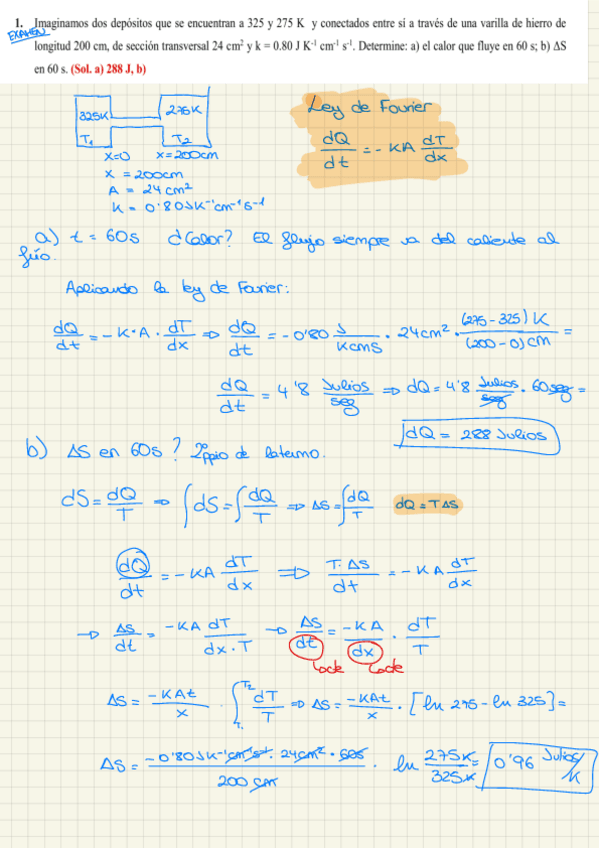 1. Imaginamos dos depósitos que se encuentran a 325 y 275 K y conectados entre sí a través de una varilla de hierro de
EXAMEN
longitud 200 cm, de sección transversal 24 cm² y k = 0.80 J K⁻¹ cm⁻¹ s⁻¹. Determine: a) el calor que fluye en 60 s; b) ΔS
en 60 s. (Sol. a) 288 J, b)
325K 275K
T₁ T₂
x=0 x=200cm
x = 200cm
A = 24 cm²
K = 0'80 J K⁻¹cm⁻¹s⁻¹
Ley de Fourier
dQ/dt = - KA dT/dx
a) t = 60s d Calor? El flujo siempre va del caliente al
frío.
Aplicando la ley de Fourier:
dQ/dt = -K·A · dT/dx ⇒ dQ/dt = -0'80 J/KcmS · 24cm² · (275-325) K/(200-0) cm =
dQ/dt = 4'8 Julios/seg ⇒ dQ = 4'8 Julios/seg · 60 seg =
dQ = 288 Julios
b) ΔS en 60s? 2º ppio de la termo.
dS = dQ/T ⇒ ∫dS = ∫dQ/T ⇒ ΔS = ∫dQ/T dQ = TΔS
dQ/dt = - KA dT/dx ⇒ T.ΔS/dt = - KA dT/dx
→ ΔS/dt = -KA dT/dx.T → ΔS/dt = -KA/dx · dT/T
cte cte
ΔS = -KAt/x · ∫T₁T₂ dT/T ⇒ ΔS = -KAt/x · [ln 275 - ln 325] =
ΔS = -0'80JK⁻¹cm⁻¹s⁻¹. 24cm² · 60s/200 cm · ln 275K/325K = 0'96 Julios/K